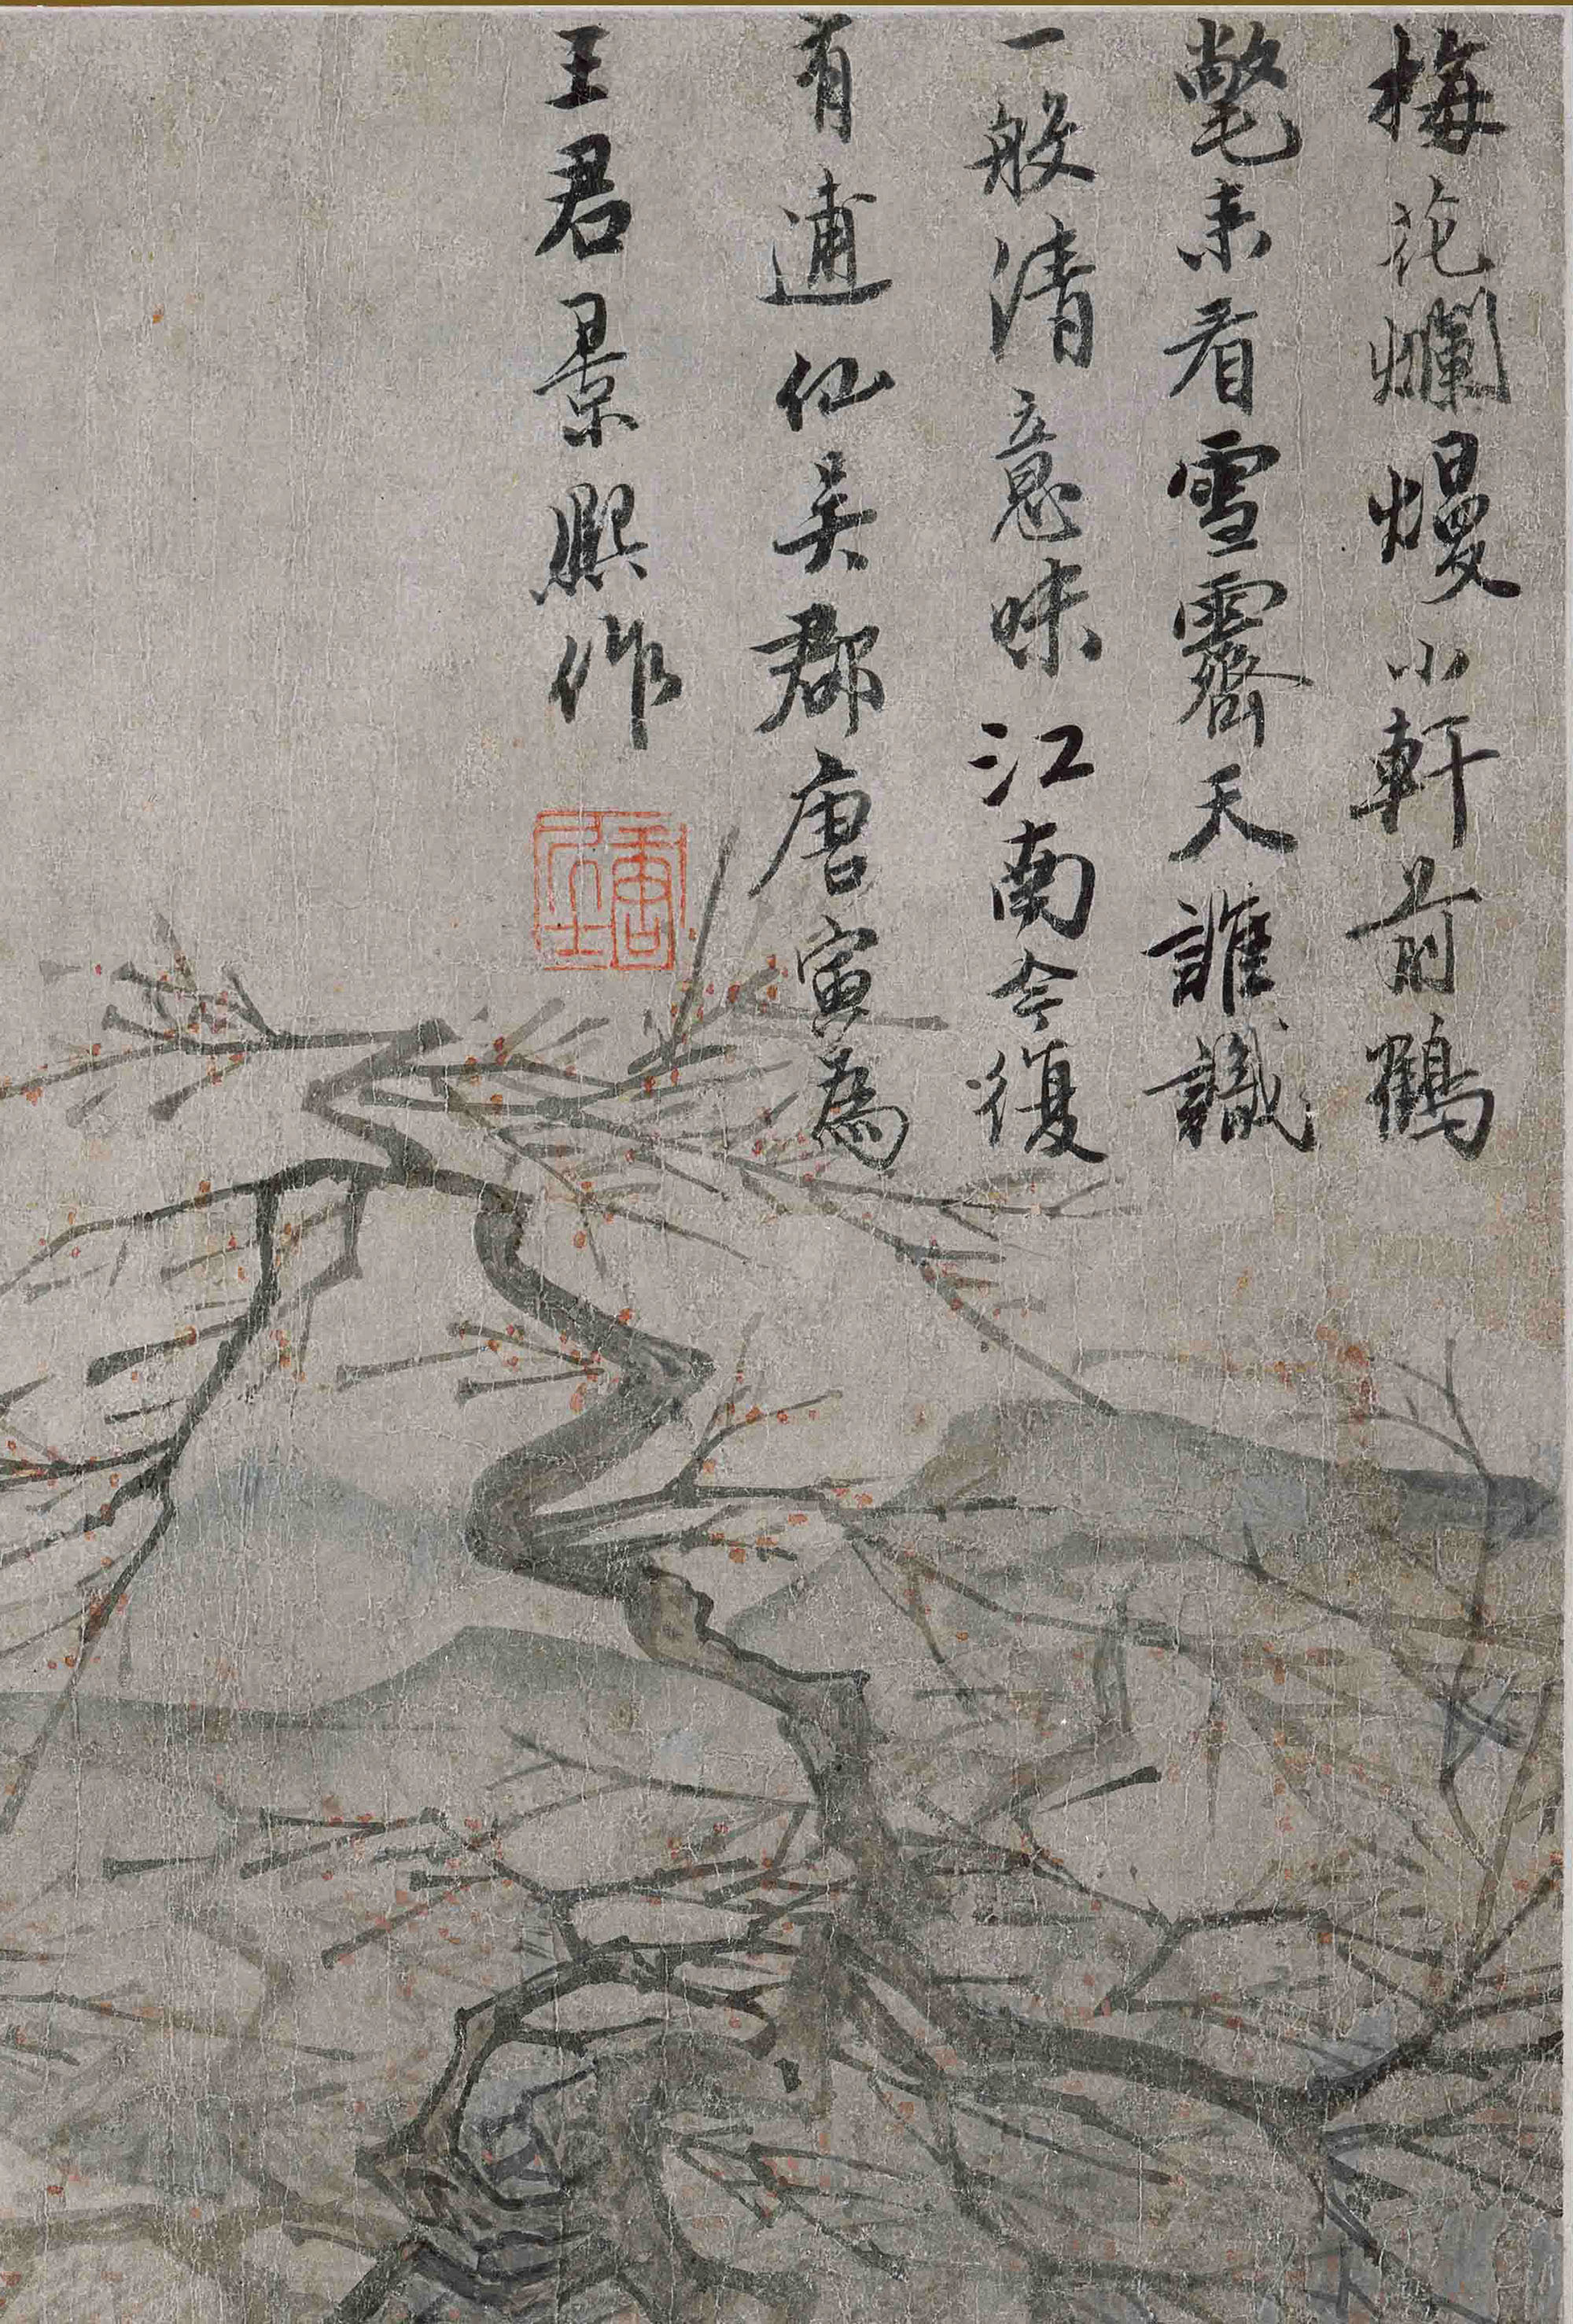 梅花爛熳小軒前鶴
氅來看雪霽天誰識
一般清意味江南今復
有逋仙吳郡唐寅為
王君景熙作
唐居士